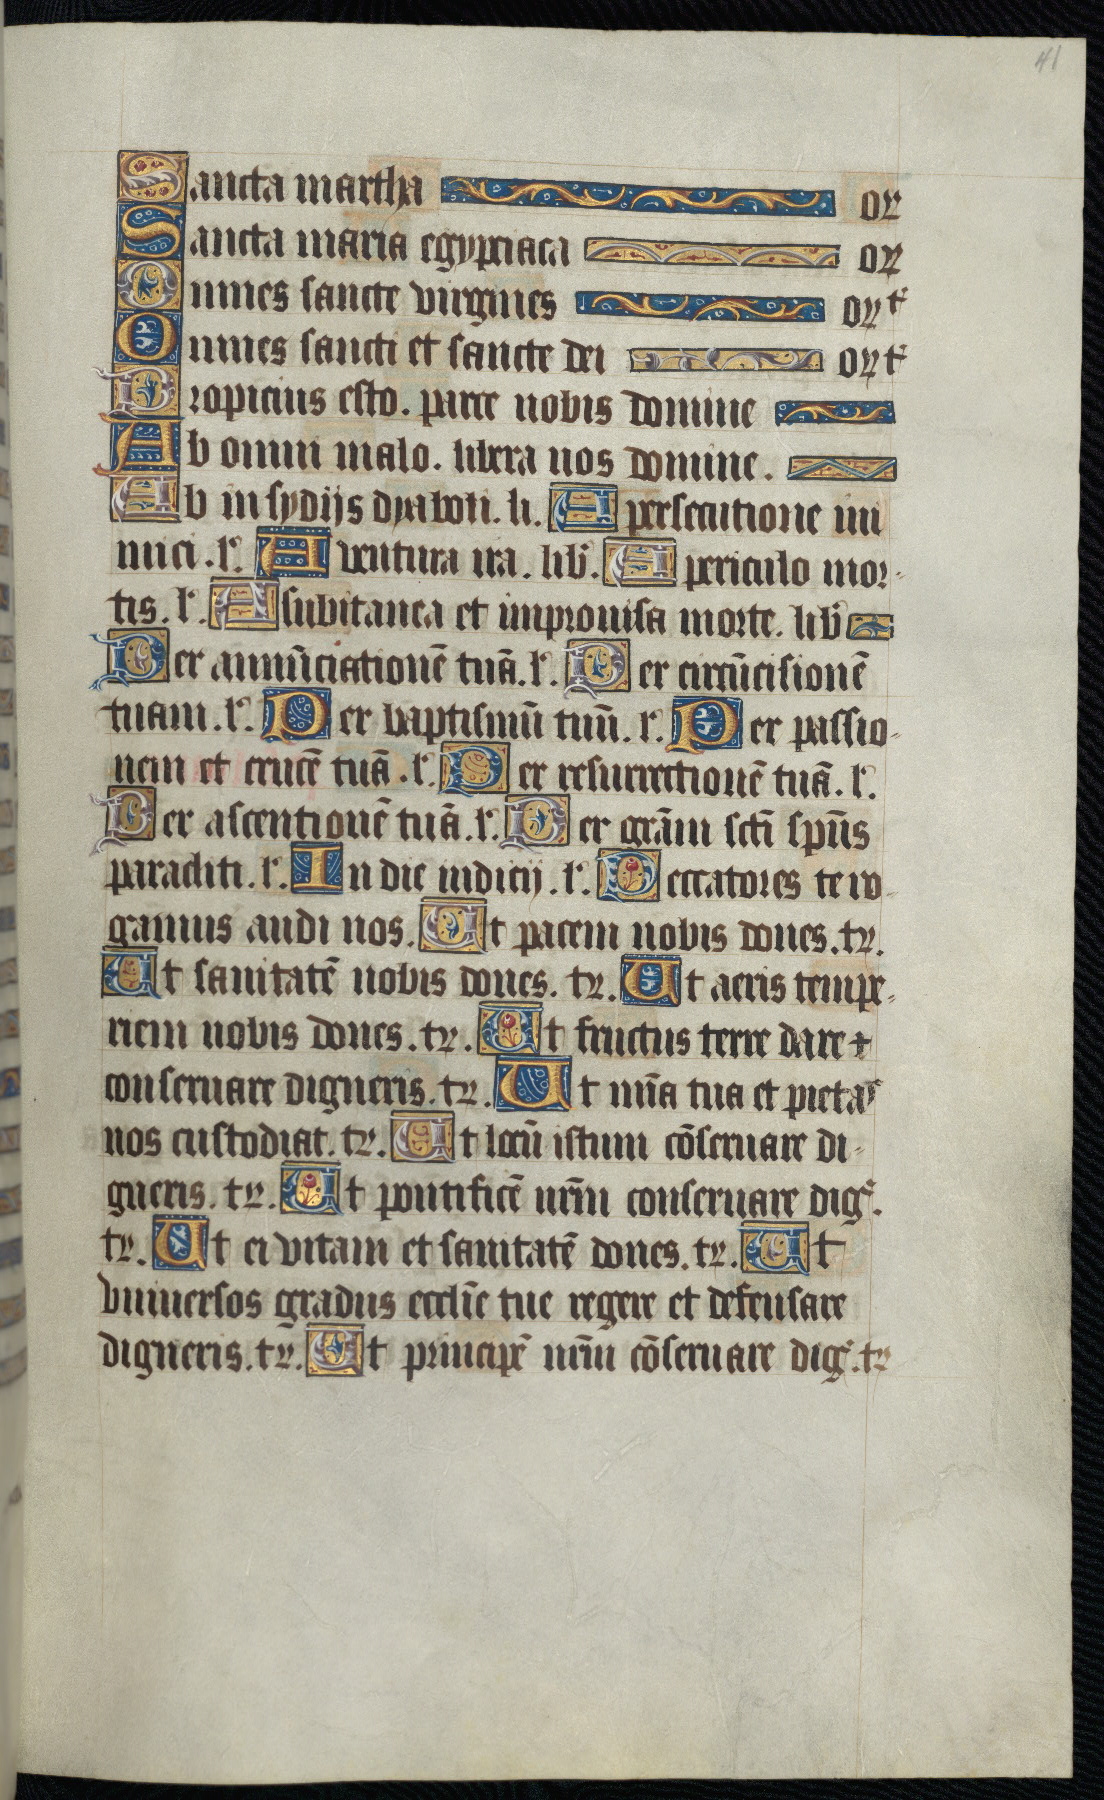 41
Sancta martha or
Sancta maria egyptiaca or
Omnes sancte virgines ort
Omnes sancti et sancte dei ort
Propicius esto. parce nobis domine
Ab omni malo. libera nos domine.
Ab insydijs dyaboli. li. A persecutione ini
mici. l'. A ventura ira. lib̄. A periculo mor-
tis. l'. A subitanea et improuisa morte. lib̄
Per annūciationē tuā. l'. Per circūcisionē
tuam. l'. Per baptismū tuū. l'. Per passio-
nem et crucē tuā. l'. Per resurrectionē tuā. l'.
Per ascentionē tuā. l'. Per grām scti spūs
paracliti. l'. In die iudicij. l'. Peccatores te ro-
gamus audi nos. Ut pacem nobis dones. tr.
Ut sanitatē nobis dones. tr. Ut aeris tempe-
riem nobis dones. tr. Ut fructus terre dare ⁊
conseruare digneris. tr. Ut mīa tua et pietas
nos custodiat. tr. Ut locū istum cōseruare di-
gneris. tr. Ut pontificē nrm̄ conseruare dig'.
tr. Ut ei vitam et sanitatē dones. tr. Ut
vniuersos gradus ecclīe tue regere et defensare
digneris. tr. Ut principē nrm̄ cōseruare dig'. tr